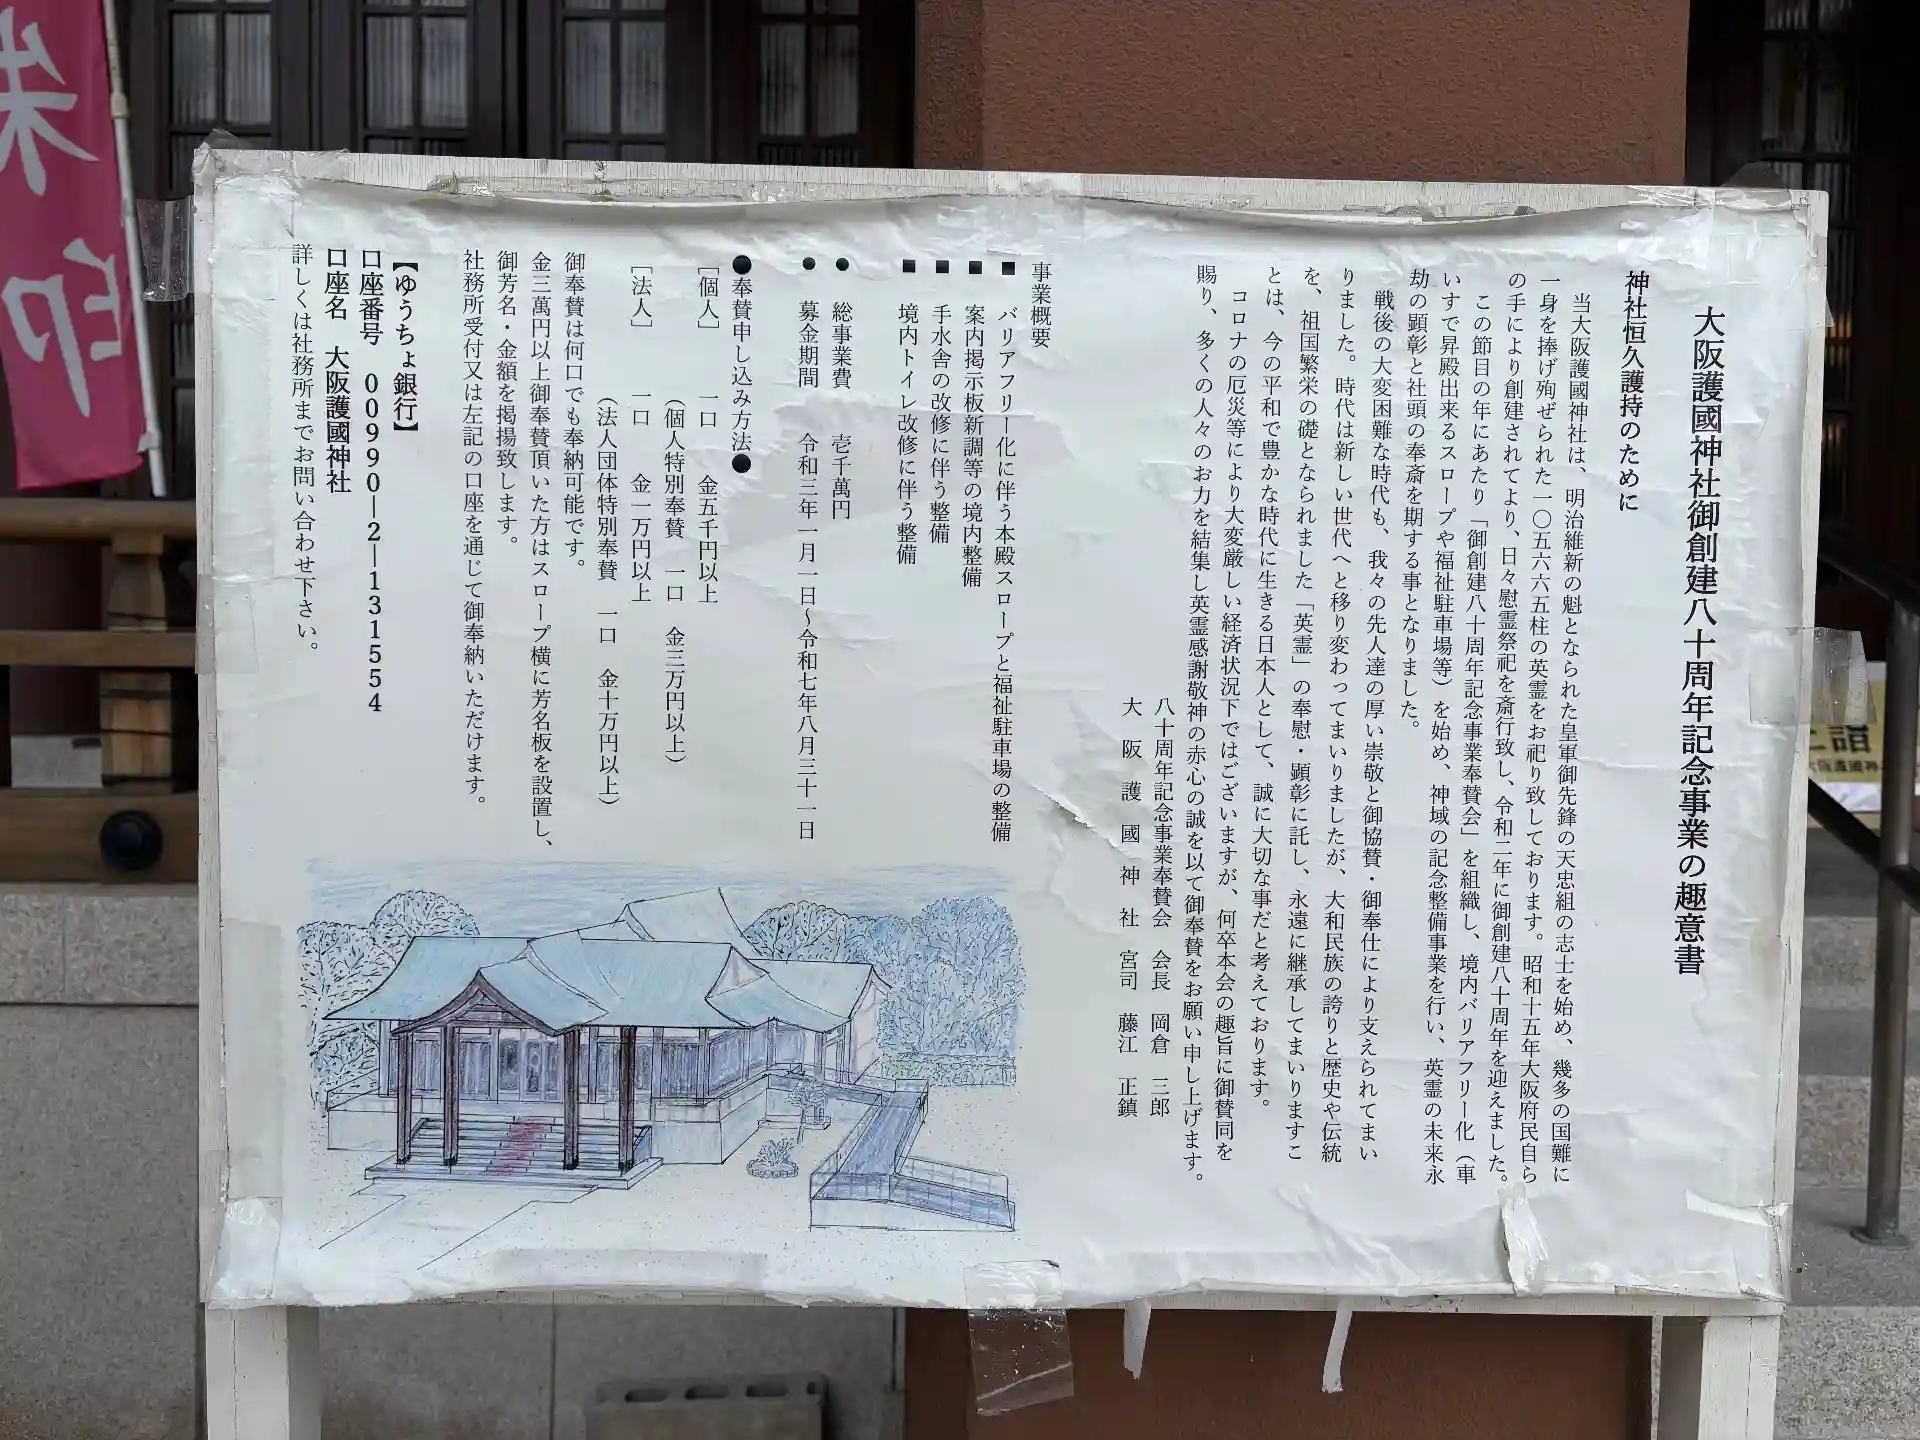 大阪護國神社御創建八十周年記念事業の趣意書
神社恒久護持のために
当大阪護國神社は、明治維新の魁となられた皇軍御先鋒の天忠組の志士を始め、幾多の国難に
一身を捧げ殉ぜられた一〇五六六五柱の英霊をお祀り致しております。昭和十五年大阪府民自ら
の手により創建されてより、日々慰霊祭祀を斎行致し、令和二年に御創建八十周年を迎えました。
この節目の年にあたり「御創建八十周年記念事業奉賛会」を組織し、境内バリアフリー化（車
いすで昇殿出来るスロープや福祉駐車場等）を始め、神域の記念整備事業を行い、英霊の未来永
劫の顕彰と社頭の奉斎を期する事となりました。
戦後の大変困難な時代も、我々の先人達の厚い崇敬と御協賛・御奉仕により支えられてまい
りました。時代は新しい世代へと移り変わってまいりましたが、大和民族の誇りと歴史や伝統
を、祖国繁栄の礎となられました「英霊」の奉慰・顕彰に託し、永遠に継承してまいりますこ
とは、今の平和で豊かな時代に生きる日本人として、誠に大切な事だと考えております。
コロナの厄災等により大変厳しい経済状況下ではございますが、何卒本会の趣旨に御賛同を
賜り、多くの人々のお力を結集し英霊感謝敬神の赤心の誠を以て御奉賛をお願い申し上げます。
八十周年記念事業奉賛会 会長 岡倉 三郎
大阪護國神社 宮司 藤江 正鎮
事業概要
■ バリアフリー化に伴う本殿スロープと福祉駐車場の整備
■ 案内掲示板新調等の境内整備
■ 手水舎の改修に伴う整備
■ 境内トイレ改修に伴う整備
● 総事業費 壱千萬円
● 募金期間 令和三年一月一日〜令和七年八月三十一日
●奉賛申し込み方法●
［個人］ 一口 金五千円以上
（個人特別奉賛 一口 金三万円以上）
［法人］ 一口 金一万円以上
（法人団体特別奉賛 一口 金十万円以上）
御奉賛は何口でも奉納可能です。
金三萬円以上御奉賛頂いた方はスロープ横に芳名板を設置し、
御芳名・金額を掲揚致します。
社務所受付又は左記の口座を通じて御奉納いただけます。
【ゆうちょ銀行】
口座番号 00990―2―131554
口座名 大阪護國神社
詳しくは社務所までお問い合わせ下さい。
朱印